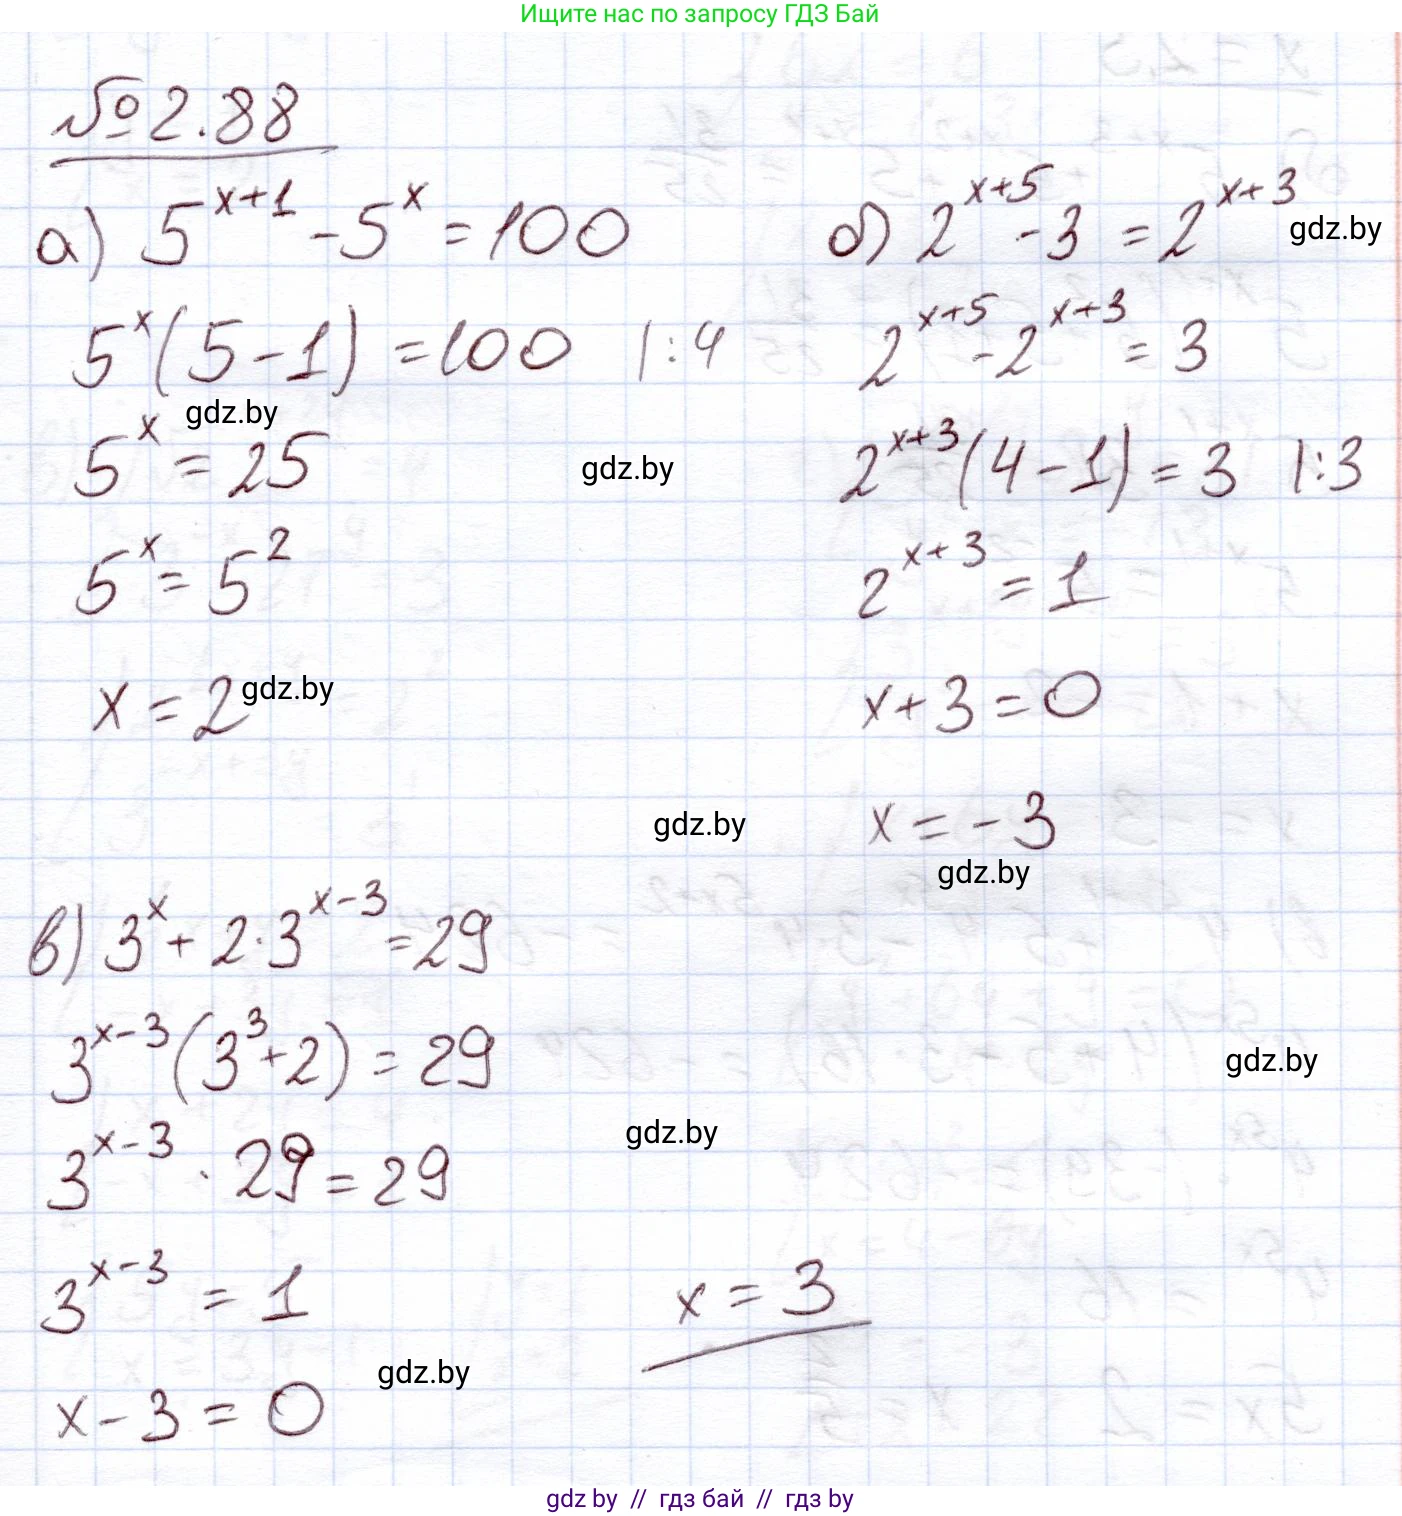 Ищите нас по запросу ГДЗ Бай
№ 2.88
а) 5^{x+1} - 5^x = 100
5^x (5 - 1) = 100 |:4
gdz.by
5^x = 25
gdz.by
5^x = 5^2
x = 2
gdz.by
б) 2^{x+5} - 3 = 2^{x+3}
gdz.by
2^{x+5} - 2^{x+3} = 3
2^{x+3} (4 - 1) = 3 |:3
2^{x+3} = 1
x + 3 = 0
gdz.by
x = -3
gdz.by
в) 3^x + 2·3^{x-3} = 29
3^{x-3} (3^3 + 2) = 29
gdz.by
gdz.by
3^{x-3} · 29 = 29
3^{x-3} = 1
gdz.by
x - 3 = 0
x = 3
gdz by // гдз бай // гдз by